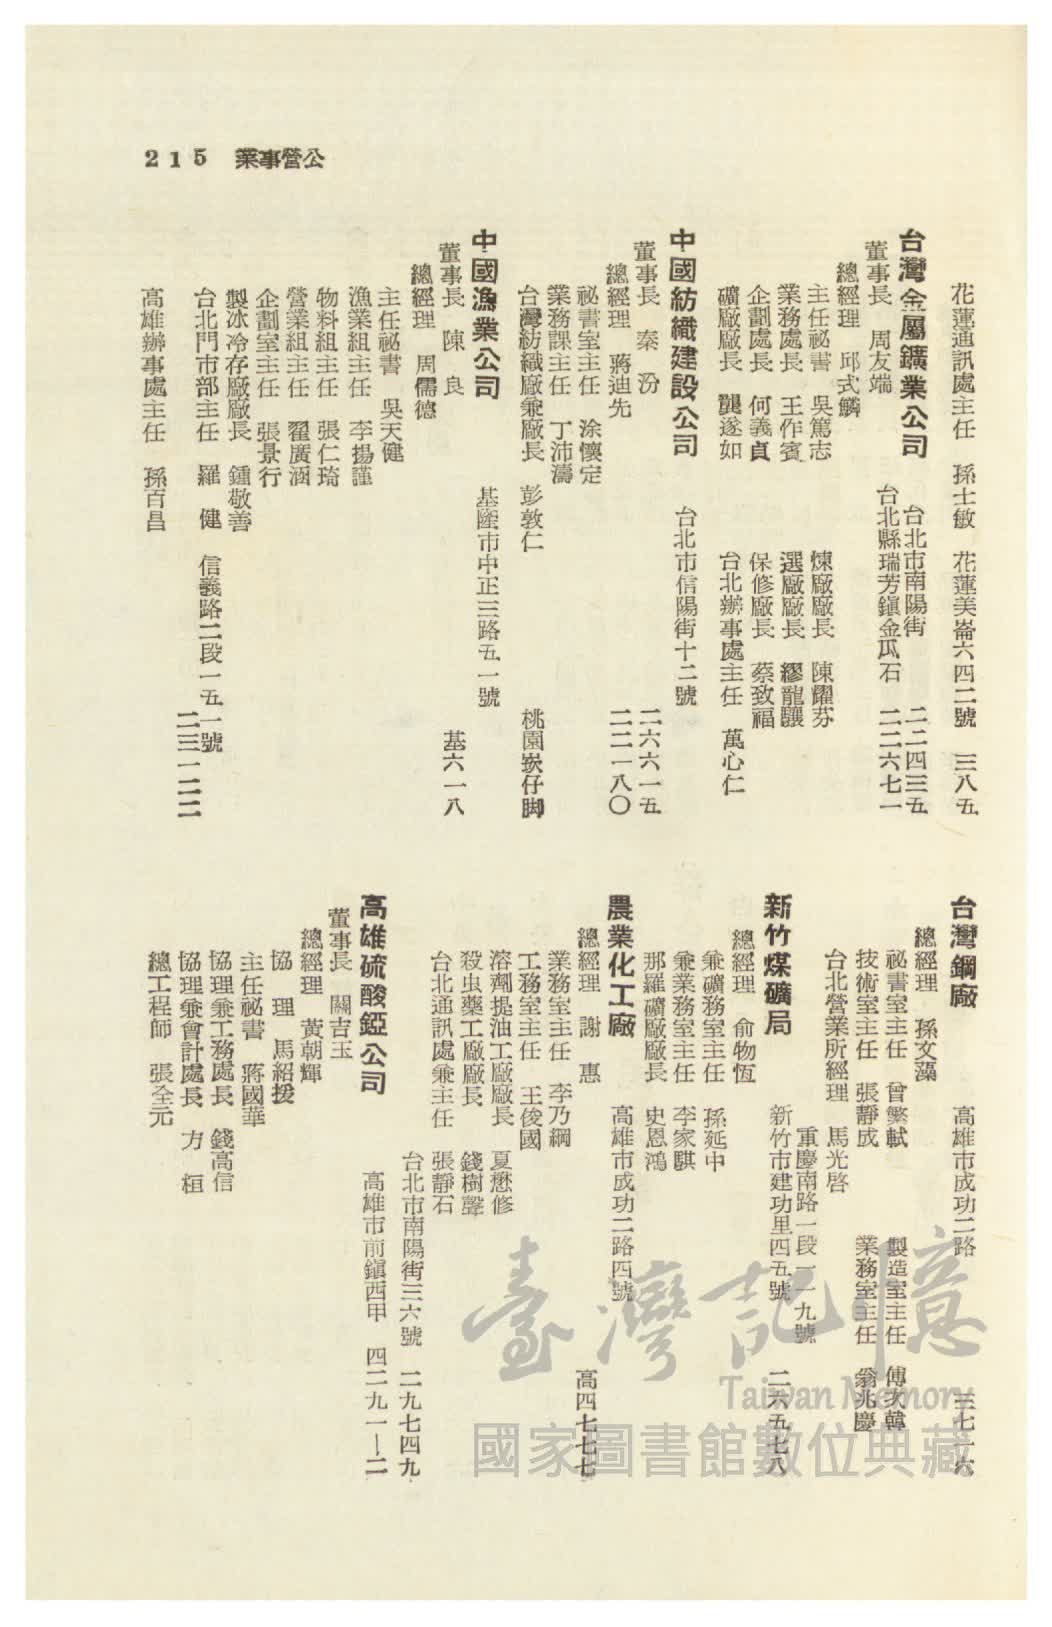 215 業事營公
花蓮通訊處主任 孫士敏 花蓮美崙六四二號 三八五
台灣金屬鑛業公司 台北市南陽街 二二四三五
台北縣瑞芳鎮金瓜石 二二六七一
董事長 周友端
總經理 邱式麟
主任祕書 吳篤志 煉廠廠長 陳耀芬
業務處長 王作賓 選廠廠長 繆龍驤
企劃處長 何義貞 保修廠長 蔡致福
礦廠廠長 龔遂如 台北辦事處主任 萬心仁
中國紡織建設公司 台北市信陽街十二號
董事長 秦 汾 二六六一五
總經理 蔣迪先 二二一八〇
祕書室主任 涂懷定
業務課主任 丁沛濤
台灣紡織廠兼廠長 彭敦仁 桃園崁仔脚
中國漁業公司 基隆市中正三路五一號
董事長 陳 良 基六一八
總經理 周儒德
主任祕書 吳天健
漁業組主任 李揚謹
物料組主任 張仁琦
營業組主任 翟廣涵
企劃室主任 張景行
製冰冷存廠廠長 鍾敬善
台北門市部主任 羅 健 信義路二段一五一號
二三一二二
高雄辦事處主任 孫百昌
台灣鋼廠 高雄市成功二路 三七一六
總經理 孫文藻
祕書室主任 曾繁軾 製造室主任 傅次韓
技術室主任 張靜成 業務室主任 翁兆慶
台北營業所經理 馬光啓
重慶南路一段一一九號
新竹煤礦局 新竹市建功里四五號 二六五七八
總經理 俞物恆
兼礦務室主任 孫延中
兼業務室主任 李家騏
那羅礦廠廠長 史恩鴻
農業化工廠 高雄市成功二路四號
總經理 謝 惠 高四七七七
業務室主任 李乃綱
工務室主任 王俊國
溶劑提油工廠廠長 夏懋修
殺虫藥工廠廠長 錢樹聲
台北通訊處兼主任 張靜石
台北市南陽街三六號 二九七四九
高雄硫酸錏公司 高雄市前鎮西甲 四二九一—二
董事長 關吉玉
總經理 黃朝輝
協 理 馬紹援
主任祕書 蔣國華
協理兼工務處長 錢高信
協理兼會計處長 方 桓
總工程師 張全元
臺灣記憶
Taiwan Memory
國家圖書館數位典藏